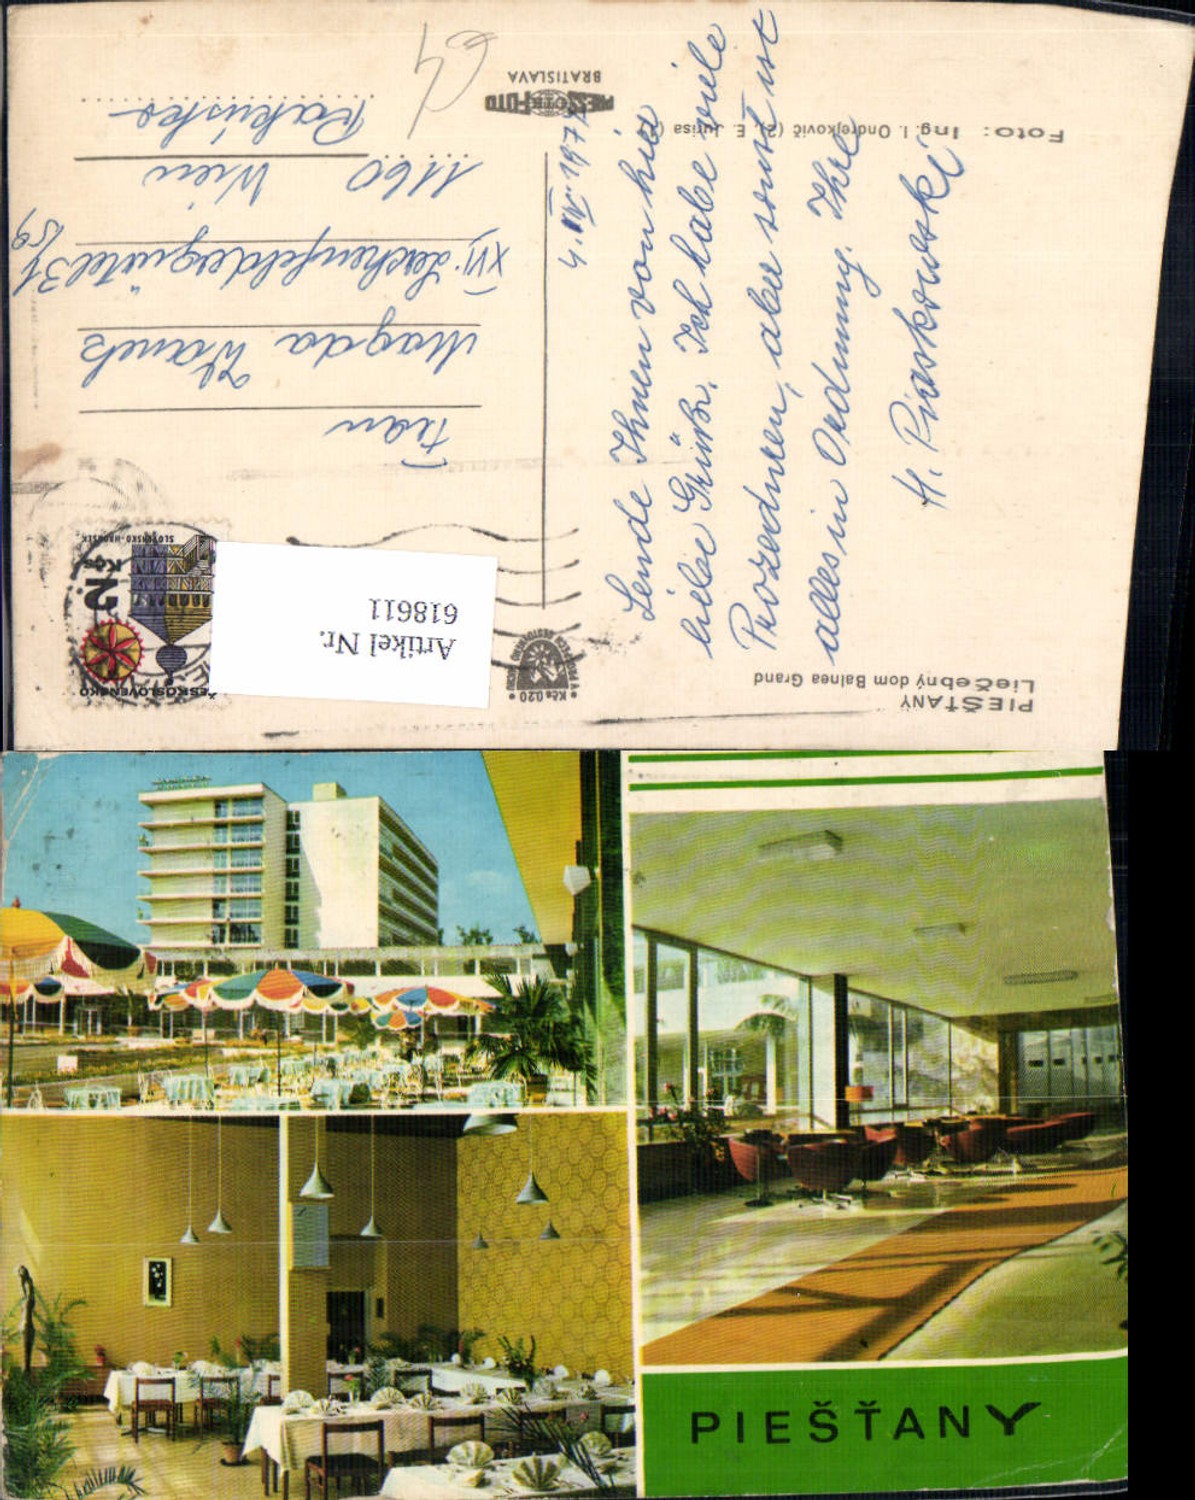 PIEŠŤANY
Liečebný dom Balnea Grand
Sende Ihnen von hier
liebe Grüße. Ich habe viele
Prozeduren, aber sonst ist
alles in Ordnung. Ihre
H. Piaskowski
Foto: Ing. I. Ondrejkovič (2), E. Jurisa
PRESSFOTO
BRATISLAVA
1974
64
ČESKOSLOVENSKO
2 Kčs
SLOVENSKO-HRONSEK
Kčs 0,20
Artikel Nr.
618611
Frau
Magda Wanek
XVI. Lerchenfeldergürtel 31
1160 Wien
Rakúsko
PIEŠŤANY